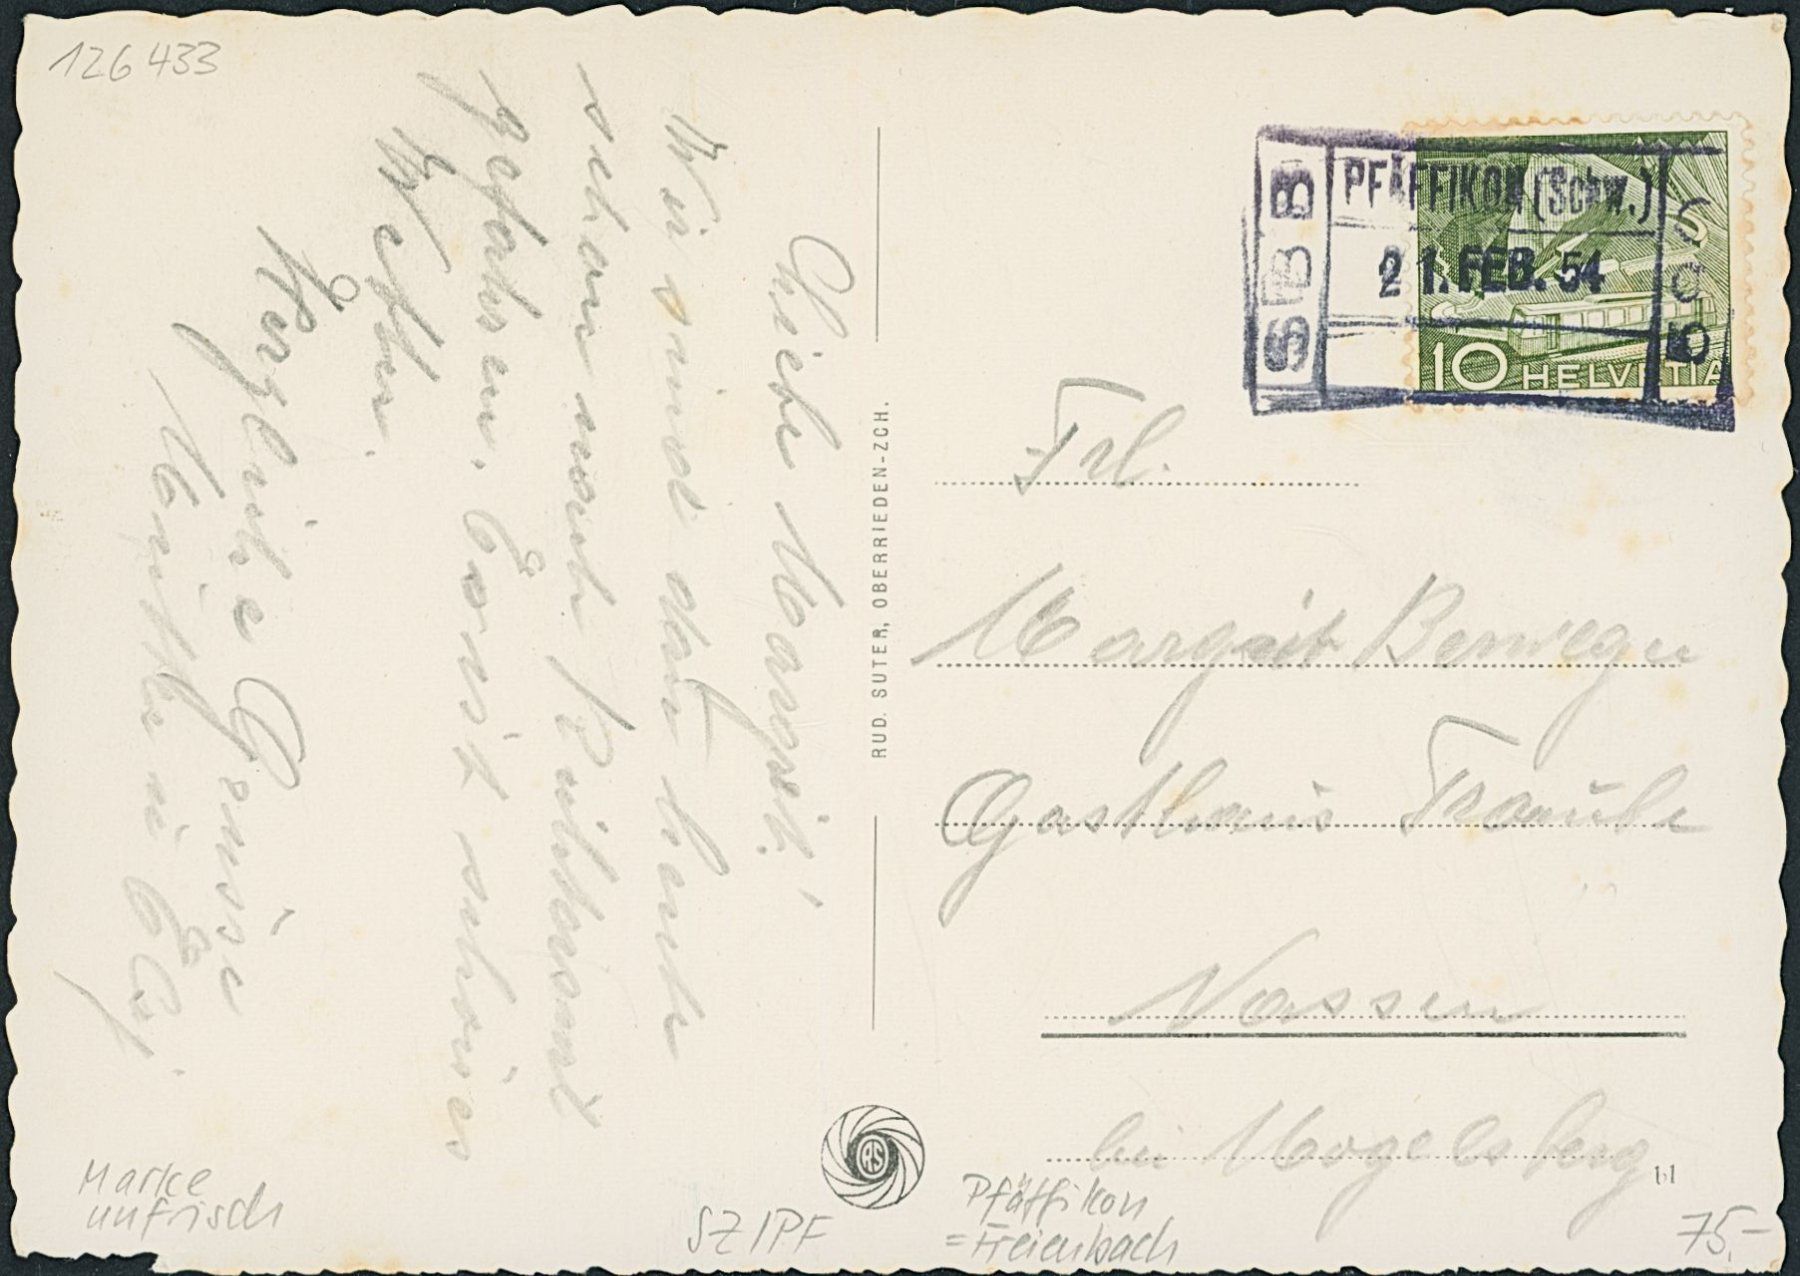 126 433
Liebe Margrit!
Wir sind dann heute
schon nach
gefahren. Es ist schönes
Wetter.
Herzliche Grüsse
RUD. SUTER, OBERRIEDEN-ZCH.
SBB
PFÄFFIKON (Schw.)
21. FEB. 54
10 HELVETIA
Frl.
Margrit
Gasthaus Traube
Nassen
bei Mogelsberg
RS
61
Marke
unfrisch
SZ/PF
Pfäffikon
=Freienbach
75.-